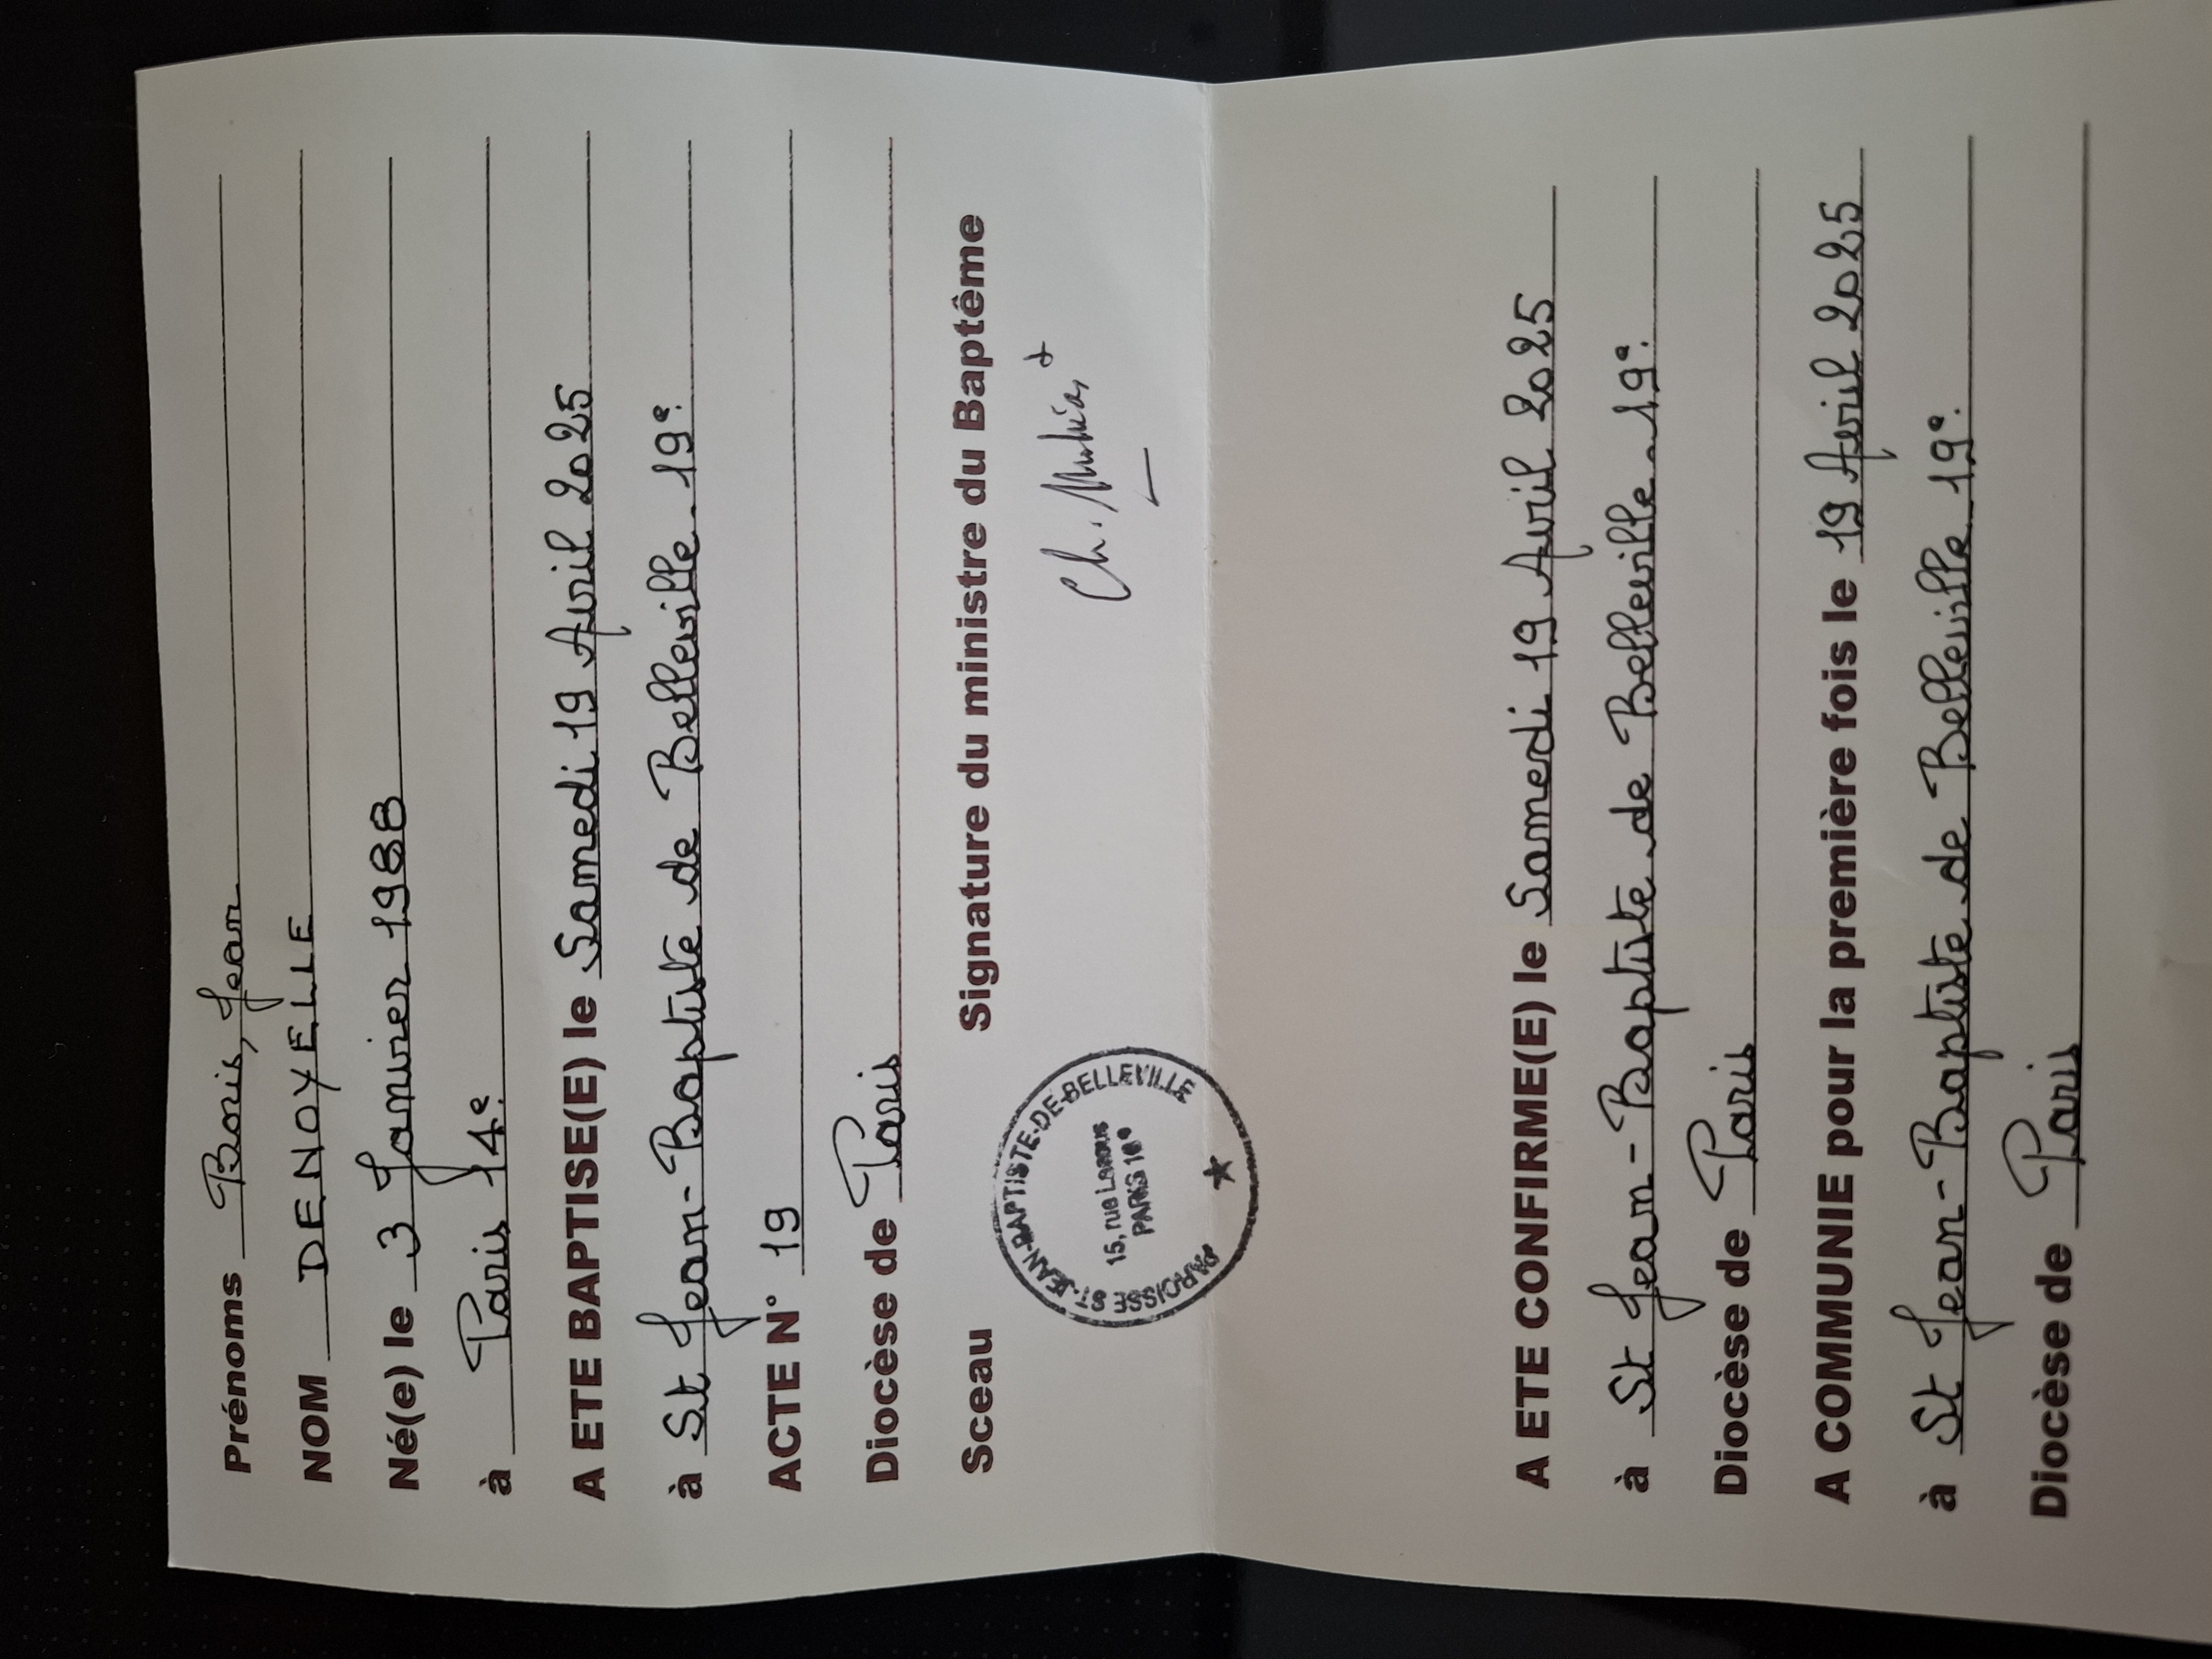 Prénoms Boris, Jean
NOM DENOYELLE
Né(e) le 3 Janvier 1988
à Paris 14e
A ETE BAPTISE(E) le Samedi 19 Avril 2025
à St Jean-Baptiste de Belleville 19e
ACTE N° 19
Diocèse de Paris
Sceau Signature du ministre du Baptême
PAROISSE ST-JEAN-BAPTISTE-DE-BELLEVILLE
15, rue
PARIS
Ch.
A ETE CONFIRME(E) le Samedi 19 Avril 2025
à St Jean-Baptiste de Belleville 19e
Diocèse de Paris
A COMMUNIE pour la première fois le 19 Avril 2025
à St Jean-Baptiste de Belleville 19e
Diocèse de Paris